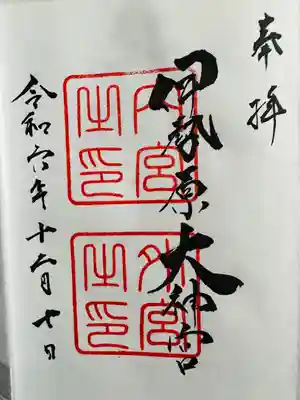 奉拝
伊勢原大神宮
内宮之印
外宮之印
令和六年十二月十日